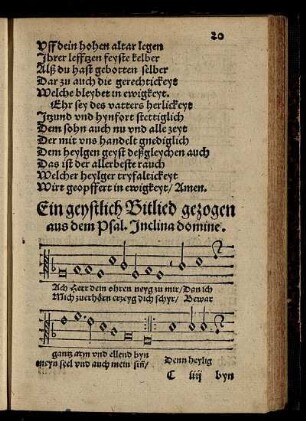 20
Uff dein hohen altar legen
Ihrer lefftzen feyste kelber
Alß du hast gebotten selber
Dar zu auch die gerechtickeyt
Welche bleybet in ewigkeyt.
Ehr sey des vatters herlickeyt
Itzund vnd hynfort stettiglich
Dem sohn auch nu vnd alle zeyt
Der mit vns handelt gnediglich
Dem heylgen geyst deßgleychen auch
Das ist der allerbeste rauch
Welcher heylger tryfaltickeyt
Wirt geopffert in ewigkeyt/ Amen.
Ein geystlich Bitlied gezogen
aus dem Psal. Inclina domine.
Ach Herr dein ohren neyg zu mir/ Dan ich
Mich zuerhören erzeyg dich schyr/ Bewar
gantz arm vnd ellend byn
meyn seel vnd auch mein siñ/
Denn heylig
C iiij byn